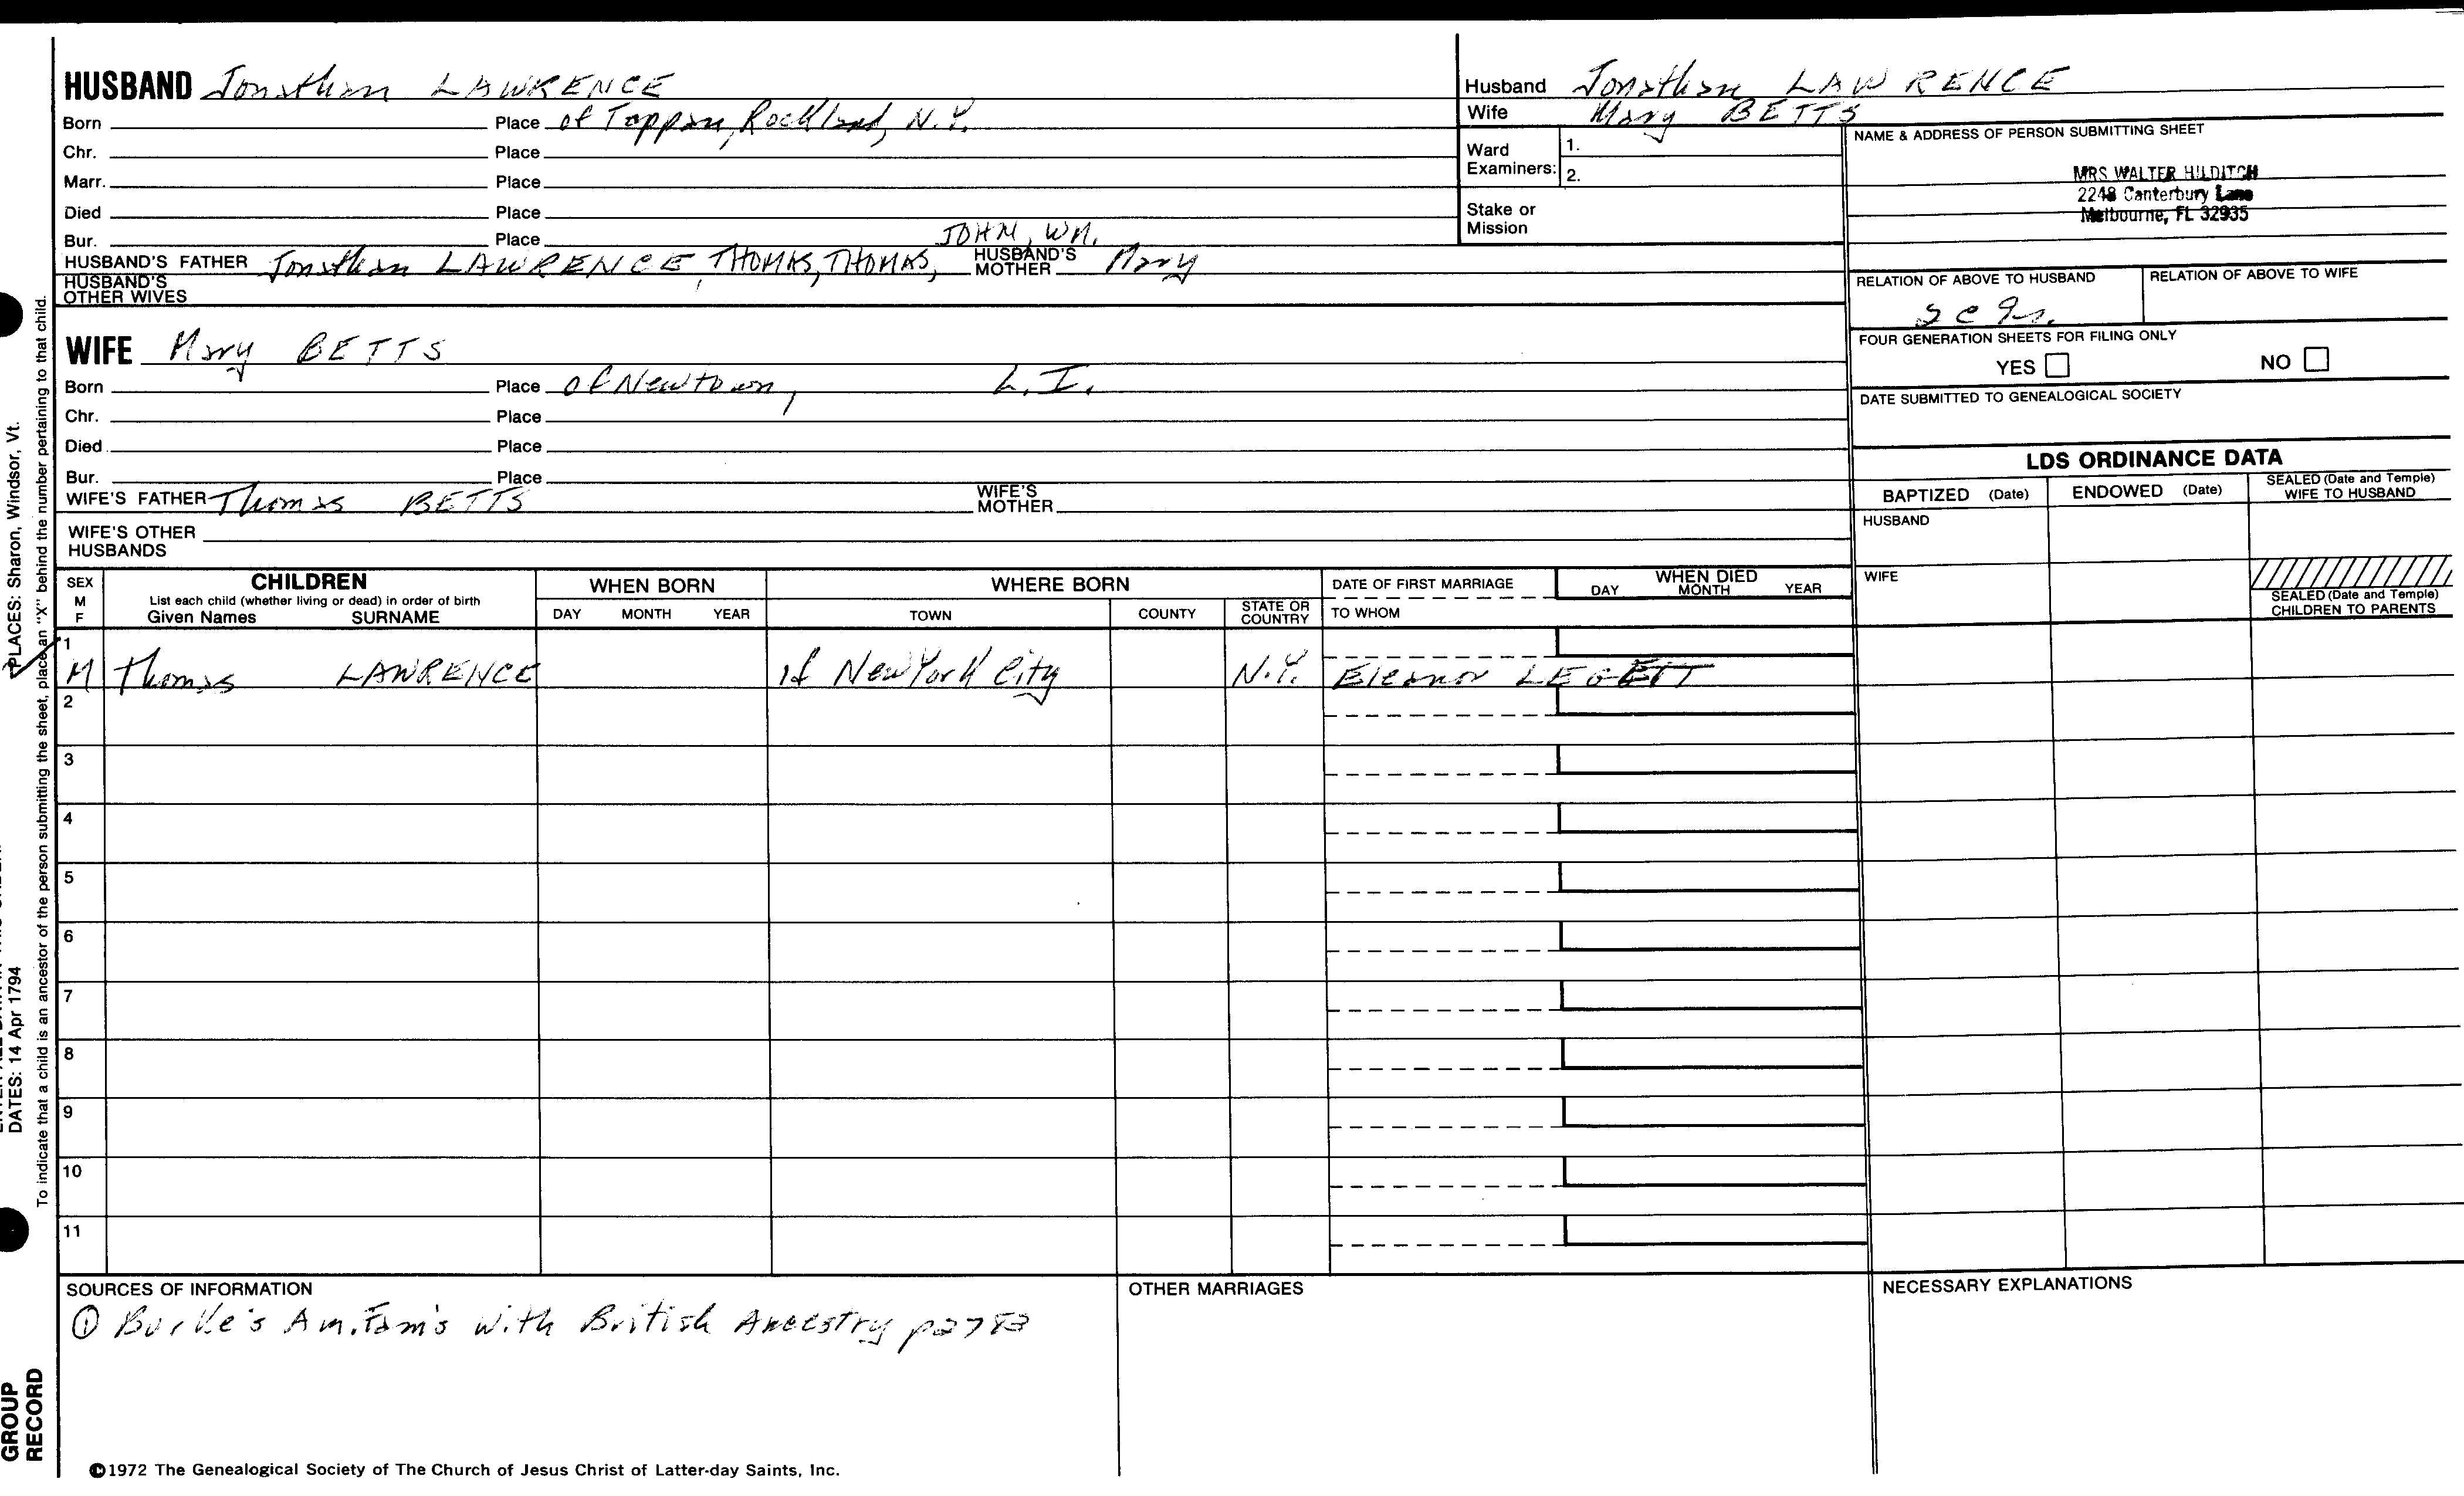 HUSBAND Jonathan LAWRENCE
Born Place of Tappan, Rockland, N.Y.
Chr. Place
Marr. Place
Died Place
Bur. Place JOHN, WM.
HUSBAND'S FATHER Jonathan LAWRENCE, THOMAS, THOMAS, HUSBAND'S MOTHER Mary
HUSBAND'S OTHER WIVES
WIFE Mary BETTS
Born Place of Newtown, L.I.
Chr. Place
Died Place
Bur. Place
WIFE'S FATHER Thomas BETTS WIFE'S MOTHER
WIFE'S OTHER HUSBANDS
Husband Jonathan LAWRENCE
Wife Mary BETTS
Ward Examiners: 1.
2.
Stake or Mission
NAME & ADDRESS OF PERSON SUBMITTING SHEET
MRS WALTER HILDITCH
2248 Canterbury Lane
Melbourne, FL 32935
RELATION OF ABOVE TO HUSBAND RELATION OF ABOVE TO WIFE
FOUR GENERATION SHEETS FOR FILING ONLY
YES NO
DATE SUBMITTED TO GENEALOGICAL SOCIETY
LDS ORDINANCE DATA
BAPTIZED (Date) ENDOWED (Date) SEALED (Date and Temple) WIFE TO HUSBAND
HUSBAND
WIFE
SEALED (Date and Temple) CHILDREN TO PARENTS
SEX M F CHILDREN WHEN BORN WHERE BORN DATE OF FIRST MARRIAGE WHEN DIED
List each child (whether living or dead) in order of birth
Given Names SURNAME DAY MONTH YEAR TOWN COUNTY STATE OR COUNTRY TO WHOM DAY MONTH YEAR
1
M Thomas LAWRENCE of New York City N.Y. Eleanor LEGETT
2
3
4
5
6
7
8
9
10
11
SOURCES OF INFORMATION OTHER MARRIAGES NECESSARY EXPLANATIONS
① Burke's Am. Fam's with British Ancestry p2783
©1972 The Genealogical Society of The Church of Jesus Christ of Latter-day Saints, Inc.
PLACES: Sharon, Windsor, Vt.
DATES: 14 Apr 1794
To indicate that a child is an ancestor of the person submitting the sheet, place an "X" behind the number pertaining to that child.
GROUP
RECORD